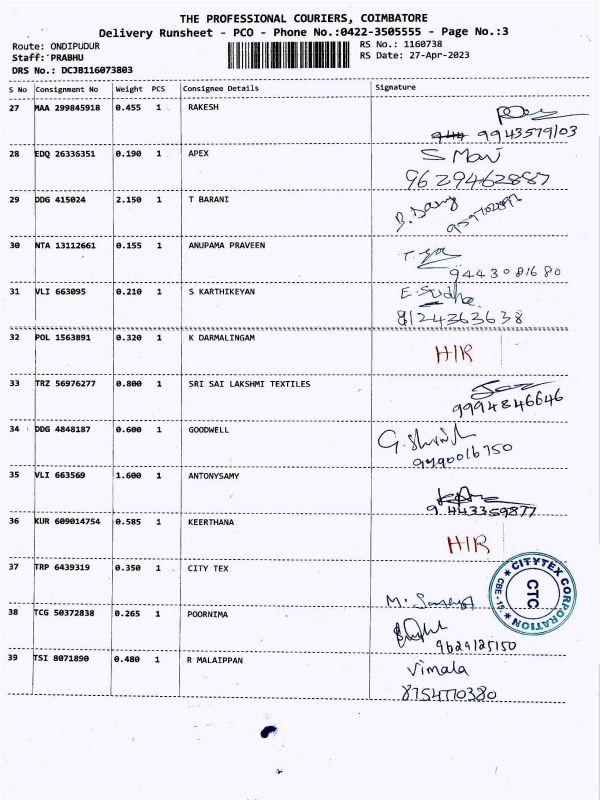 THE PROFESSIONAL COURIERS, COIMBATORE
Delivery Runsheet - PCO - Phone No.:0422-3505555 - Page No.:3
Route: ONDIPUDUR RS No.: 1160738
Staff: PRABHU RS Date: 27-Apr-2023
DRS No.: DCJB116073803
S No Consignment No Weight PCS Consignee Details Signature
27 MAA 299845918 0.455 1 RAKESH
9943579103
28 EDQ 26336351 0.190 1 APEX S Mani
9629462887
29 DDG 415024 2.150 1 T BARANI
30 NTA 13112661 0.155 1 ANUPAMA PRAVEEN
9443081680
31 VLI 663095 0.210 1 S KARTHIKEYAN E. Sudha
8124363638
32 POL 1563891 0.320 1 K DARMALINGAM
H/R
33 TRZ 56976277 0.800 1 SRI SAI LAKSHMI TEXTILES
9994846646
34 DDG 4848187 0.600 1 GOODWELL
35 VLI 663569 1.600 1 ANTONYSAMY
9443359877
36 KUR 609014754 0.585 1 KEERTHANA
H/R
37 TRP 6439319 0.350 1 CITY TEX
CITYTEX CORPORATION
CBE - 15.
CTC
38 TCG 50372838 0.265 1 POORNIMA
9629125150
39 TSI 8071890 0.480 1 R MALAIPPAN Vimala
8754770380